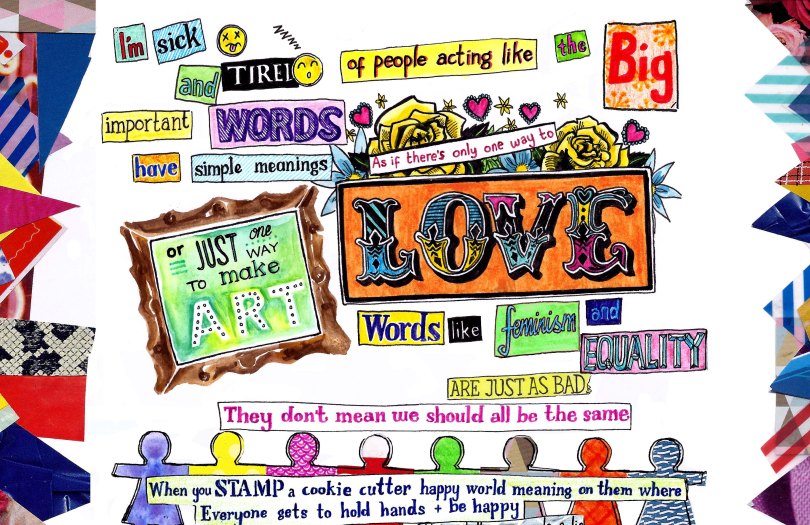 I'm sick
and TIRED
of people acting like the Big
important WORDS
have simple meanings
As if there's only one way to
LOVE
or JUST one
WAY
TO make
ART
Words like feminism and
EQUALITY
ARE JUST AS BAD.
They don't mean we should all be the same
When you STAMP a cookie cutter happy world meaning on them where
Everyone gets to hold hands + be happy